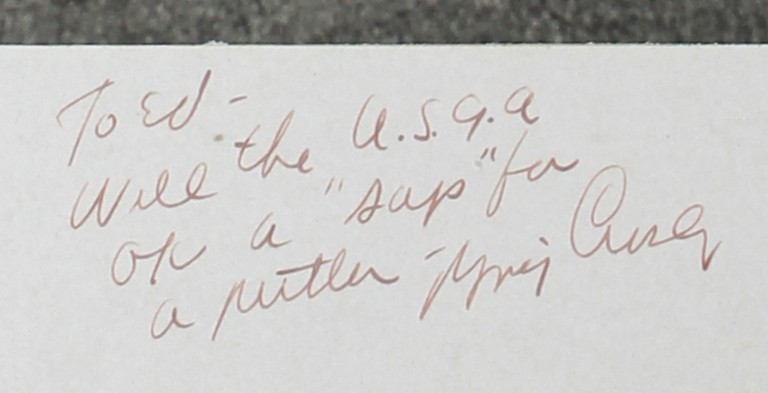 To Ed -
Will the U.S.G.A
OK a "sap" for
a putter - Bing Crosby